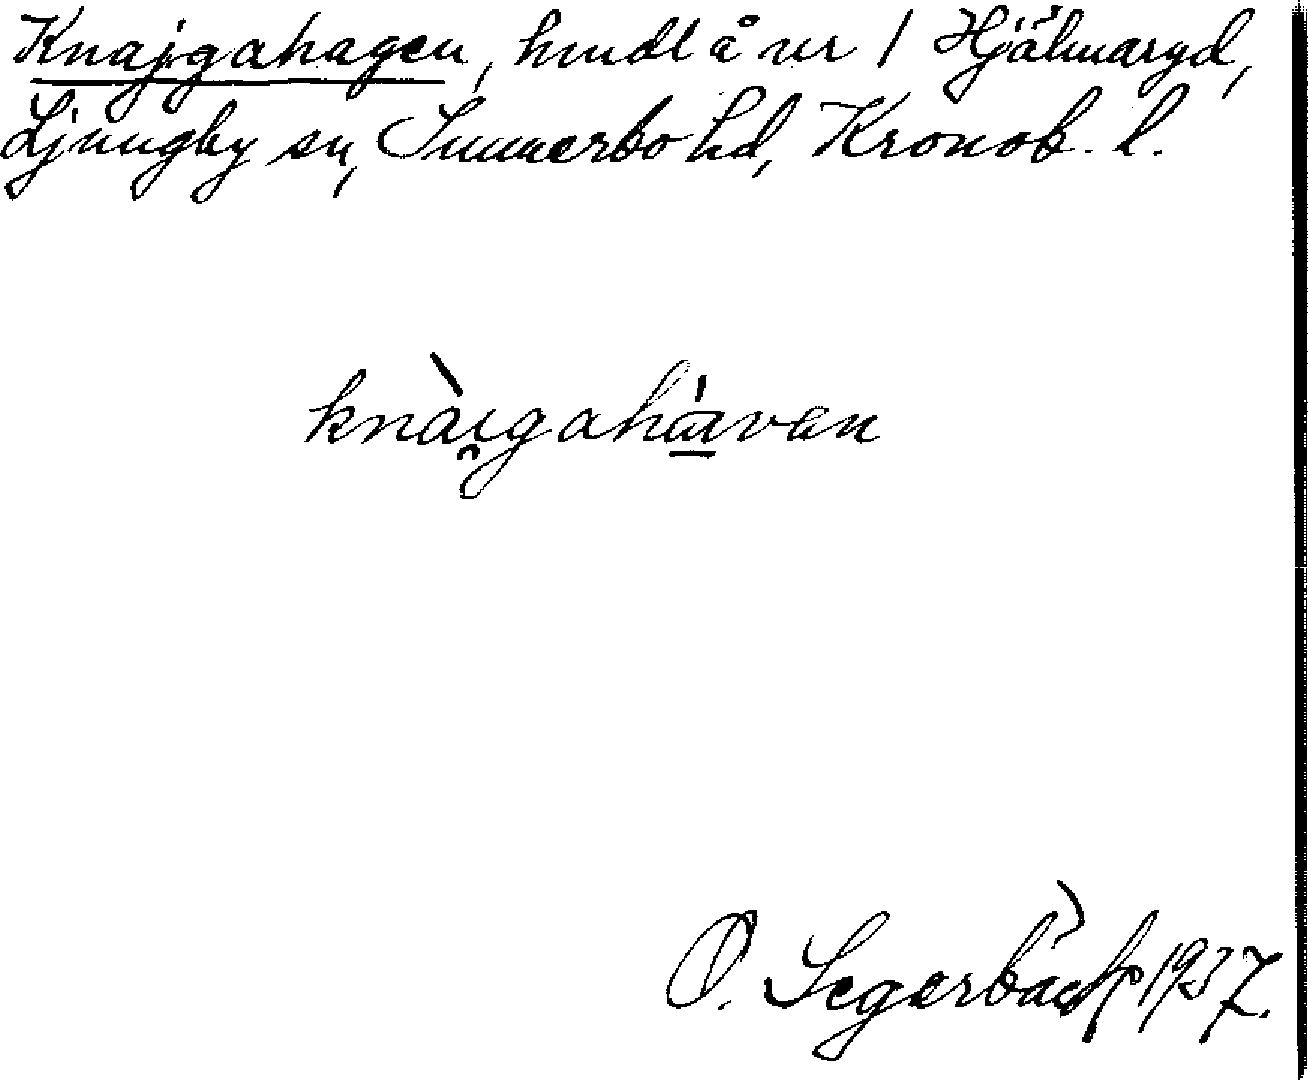 Knajgahagen, hmdl å nr 1 Hjälmaryd,
Ljungby sn, Sunnerbo hd, Kronob. l.
knàigahávan
O. Segerbäck 1937.